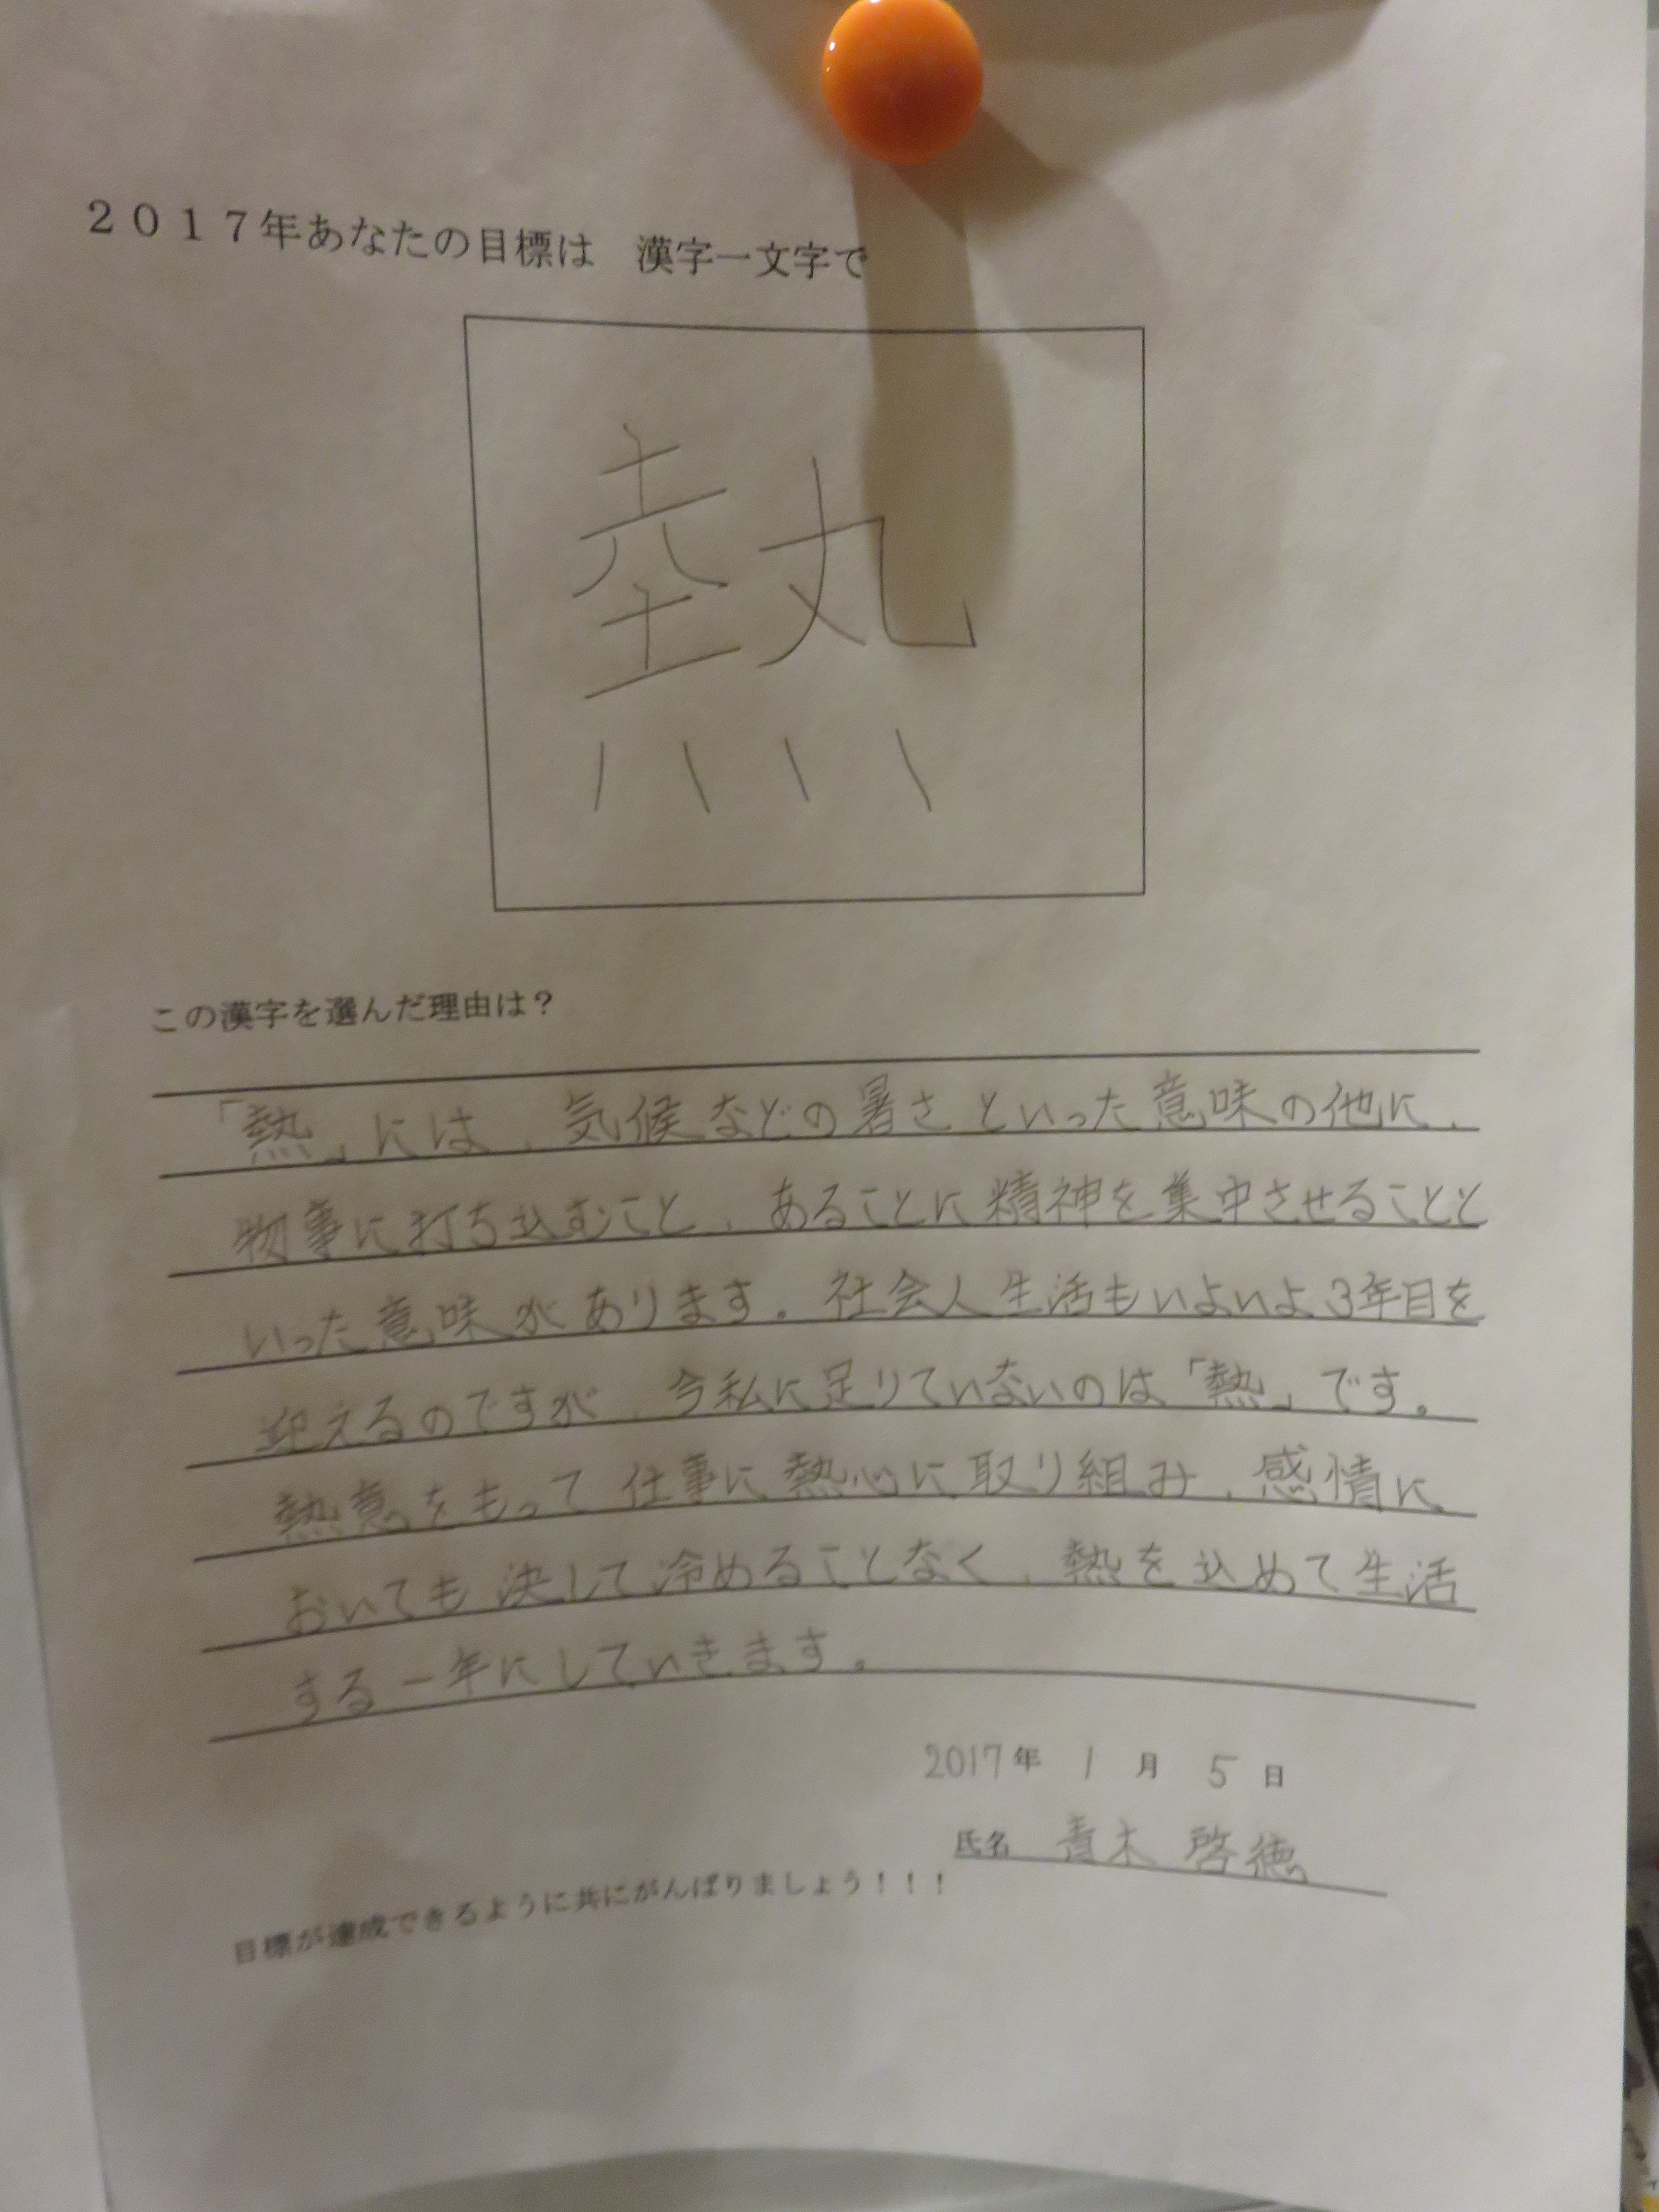 ２０１７年あなたの目標は　漢字一文字で
熱
この漢字を選んだ理由は？
「熱」には、気候などの暑さといった意味の他に、
物事に打ち込むこと、あることに精神を集中させることと
いった意味があります。社会人生活もいよいよ3年目を
迎えるのですが、今私に足りていないのは「熱」です。
熱意をもって仕事に熱心に取り組み、感情に
おいても決して冷めることなく、熱を込めて生活
する一年にしていきます。
2017年 1 月 5 日
氏名 青木 啓徳
目標が達成できるように共にがんばりましょう！！！